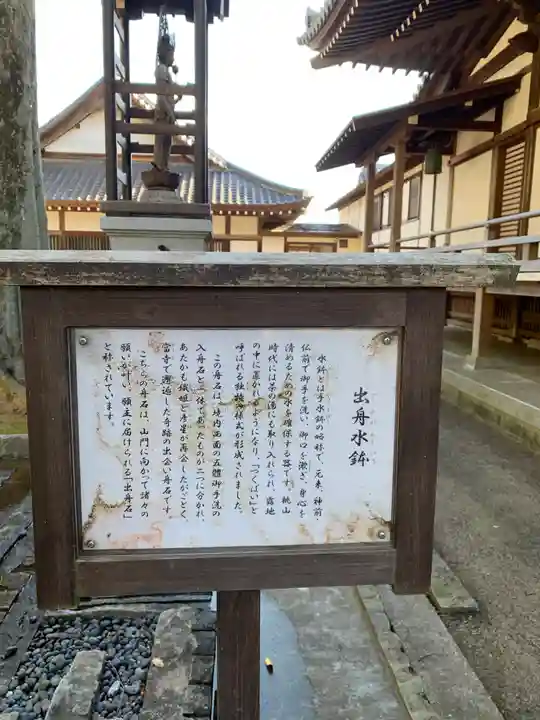 出舟水鉢
水鉢とは手水鉢の略称で、元来、神前・
仏前で御手を洗い、御口を漱ぎ、身心を
清めるための水を確保する器です。桃山
時代には茶の湯にも取り入れられ、露地
の中に置かれるようになり、「つくばい」と
呼ばれる独特の様式が形成されました。
この舟石は、境内西面の五體御手洗の
入舟石と一体であったものが二つに分かれ、
あたかも織姫と彦星が再会したがごとく、
當寺で邂逅した奇跡の出会い舟石です。
こちらの舟石は、山門に向かって諸々の
願いが叶い、願主に届けられる「出舟石」
と称されています。